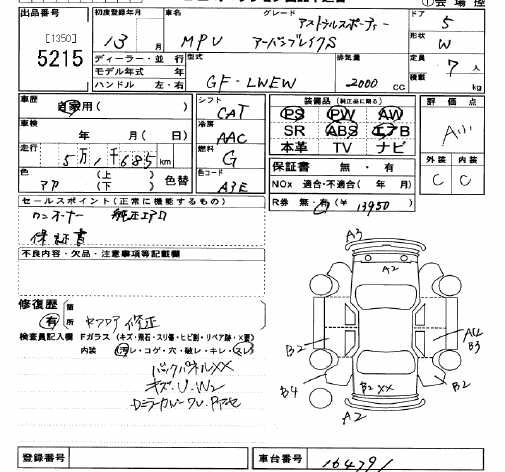 出品番号 初度登録年月 車名 グレード ドア
[1350] 5215
13 月 MPV アストラルスポーティー 5
アーバンブレイクS
形状 W
ディーラー・並行 型式 排気量 定員 7人
モデル年式 年 GF-LWEW 2000 CC 積載 kg
ハンドル 左・右
車歴 自家用( ) シフト CAT 装備品 (純正品に限る) 評価点
PS PW AW
車検 年 月( 日) 冷房 AAC SR ABS エアB
本革 TV ナビ
走行 5万1千685km 燃料 G 保証書 無・有 外装 内装
C C
色 アカ (上) (下) 色替 色コード A3E NOx 適合・不適合( 年 月)
R券 無・有(¥ 13950
セールスポイント(正常に機能するもの)
ワンオーナー 純正エアロ
保証書
不良内容・欠品・注意事項等記載欄
修復歴 箇所
有
修正
検査員記入欄 Fガラス(キズ・飛石・スリ傷・ヒビ割・リペア跡・×要)
内装 (汚レ・コゲ・穴・破レ・キレ・スレ)
バックパネルXX
キズ・U・W2
A3
A2
B2
A4
B3
B4
B2XX
B2
A2
登録番号 車台番号 164791